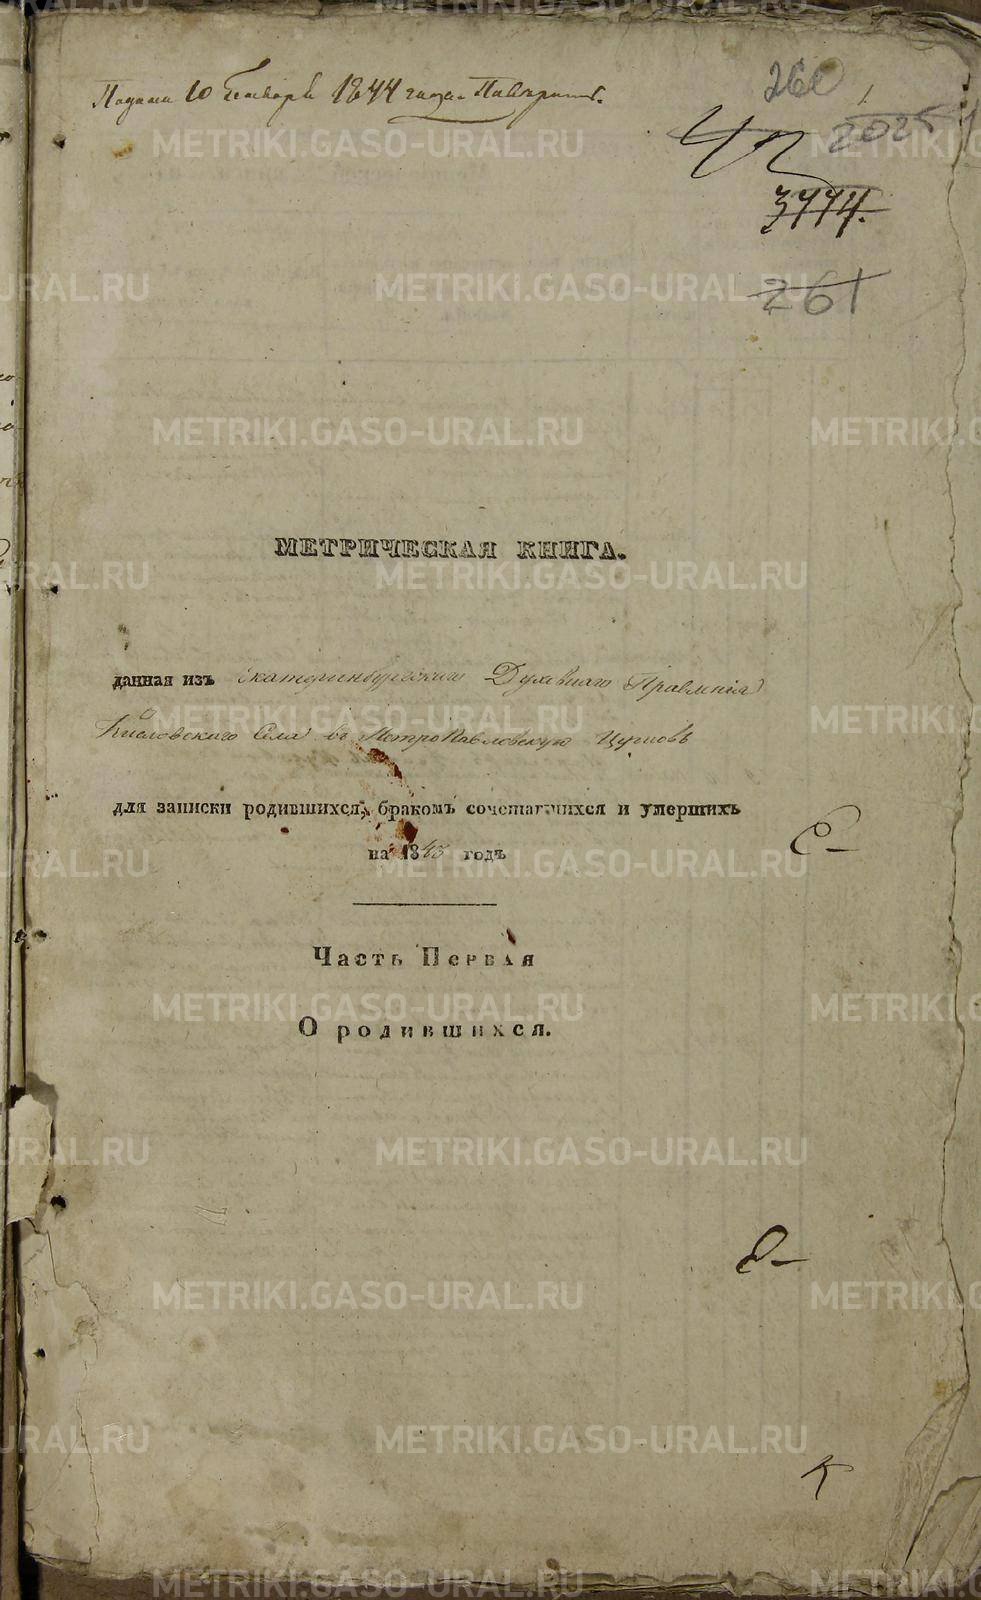 260
Подана 10 Генваря 1844 года.
1
2025
3774.
261
МЕТРИЧЕСКАЯ КНИГА.
данная изъ Екатеринбургскаго Духовнаго Правленія
Кисловского Села въ Петропавловскую Церковь
для записки родившихся, бракомъ сочетавшихся и умершихъ
на 1843 годъ
Часть Первая
О родившихся.
METRIKI.GASO-URAL.RU